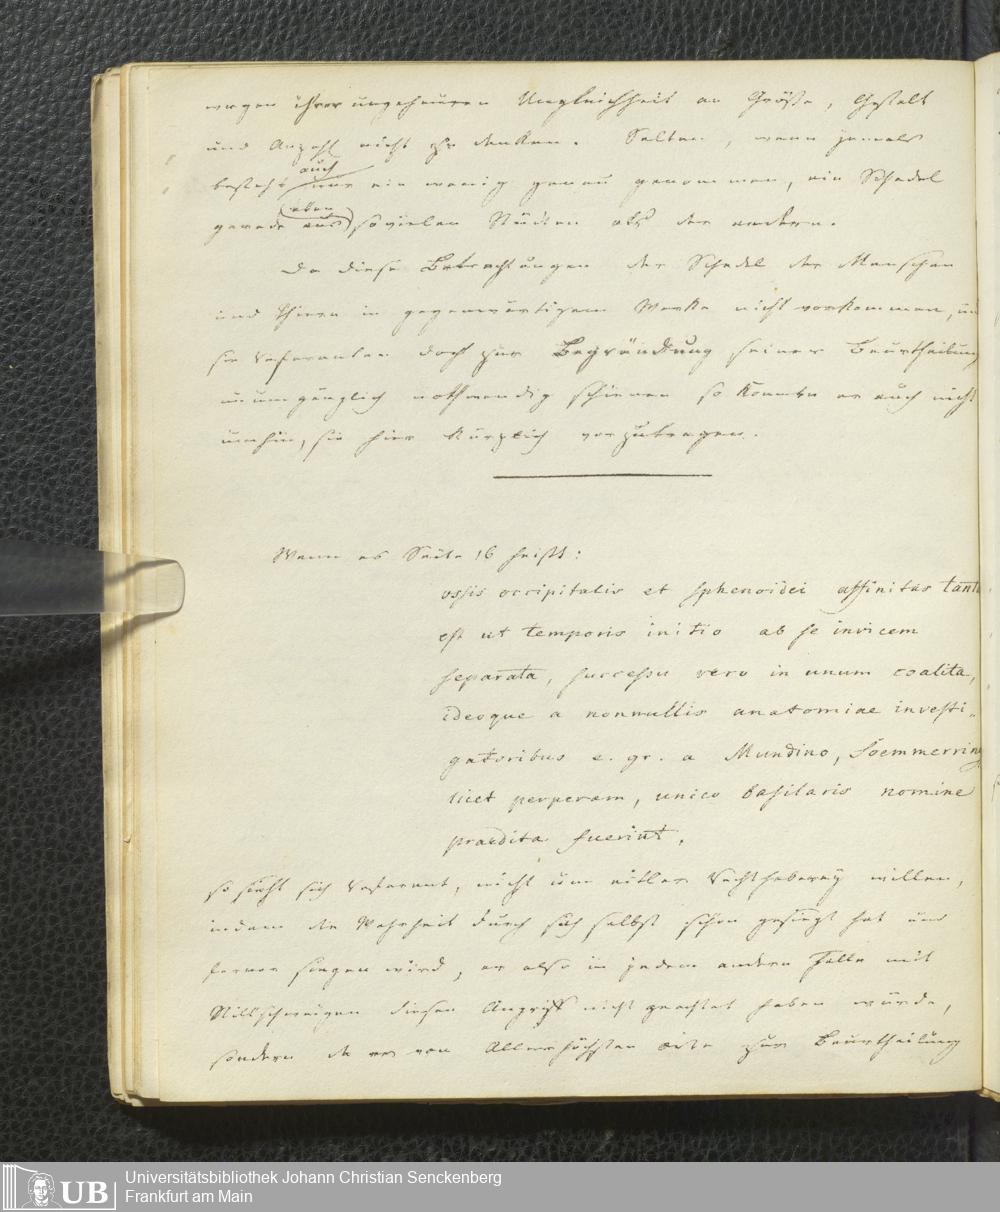 wegen ihrer ungeheuren Ungleichheit an Größe, Gestalt
und Anzahl nicht zu denken. Selten, wenn jemals
besteht auch nur ein wenig genau genommen, ein Schedel
gerade eben aus sovielen Stücken als der andere.
Da diese Betrachtungen der Schedel der Menschen
und Thiere in gegenwärtigem Werke nicht vorkommen, und
sie Referenten doch zur Begründung seiner Beurtheilung
unumgänglich nothwendig schienen so konnte er auch nicht
umhin, sie hier kürzlich vorzutragen.
Wenn es Seite 16 heißt:
ossis occipitalis et sphenoidei affinitas tanta
est ut temporis initio ab se invicem
separata, successu vero in unum coalita,
ideoque a nonnullis anatomiae investi„
gatoribus e. gr. a Mundino, Soemmerring
licet perperam, unico basilaris nomine
praedita fuerint,
so sieht sich Referent, nicht um eitler Rechthaberey willen,
indem die Wahrheit durch sich selbst schon gesiegt hat und
ferner siegen wird, er also in jedem andern Falle mit
Stillschweigen diesen Angriff nicht geachtet haben würde,
sondern da er von Allerhöchsten Orte zur Beurtheilung
UB
Universitätsbibliothek Johann Christian Senckenberg
Frankfurt am Main